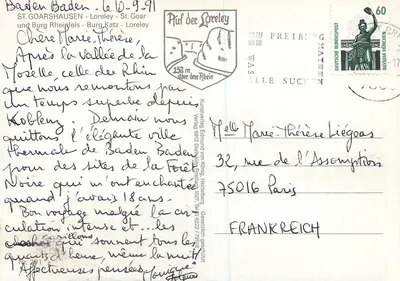 Baden Baden. le 10-9-91
ST. GOARSHAUSEN - Loreley - St. Goar
und Burg Rheinfels - Burg Katz - Loreley
Chère Marie-Thérèse,
Après la vallée de la
Moselle, celle du Rhin
que nous remontons par
un temps superbe depuis
Koblenz. Demain nous
quittons l'élégante ville
thermale de Baden Baden
pour des sites de la Forêt
Noire qui m'ont enchantée
quand j'avais 18 ans.
Bon voyage malgré la cir-
culation intense et... les
carillons qui sonnent tous les
quarts d'heure, même la nuit!
Affectueuses pensées Monique
Auf der Loreley
132 m
über dem Rhein
FREIBURG
WAS
ALLE SUCHEN
60
Melle Marie-Thérèse Liégeois
32, rue de l'Assomption
75016 Paris
FRANKREICH